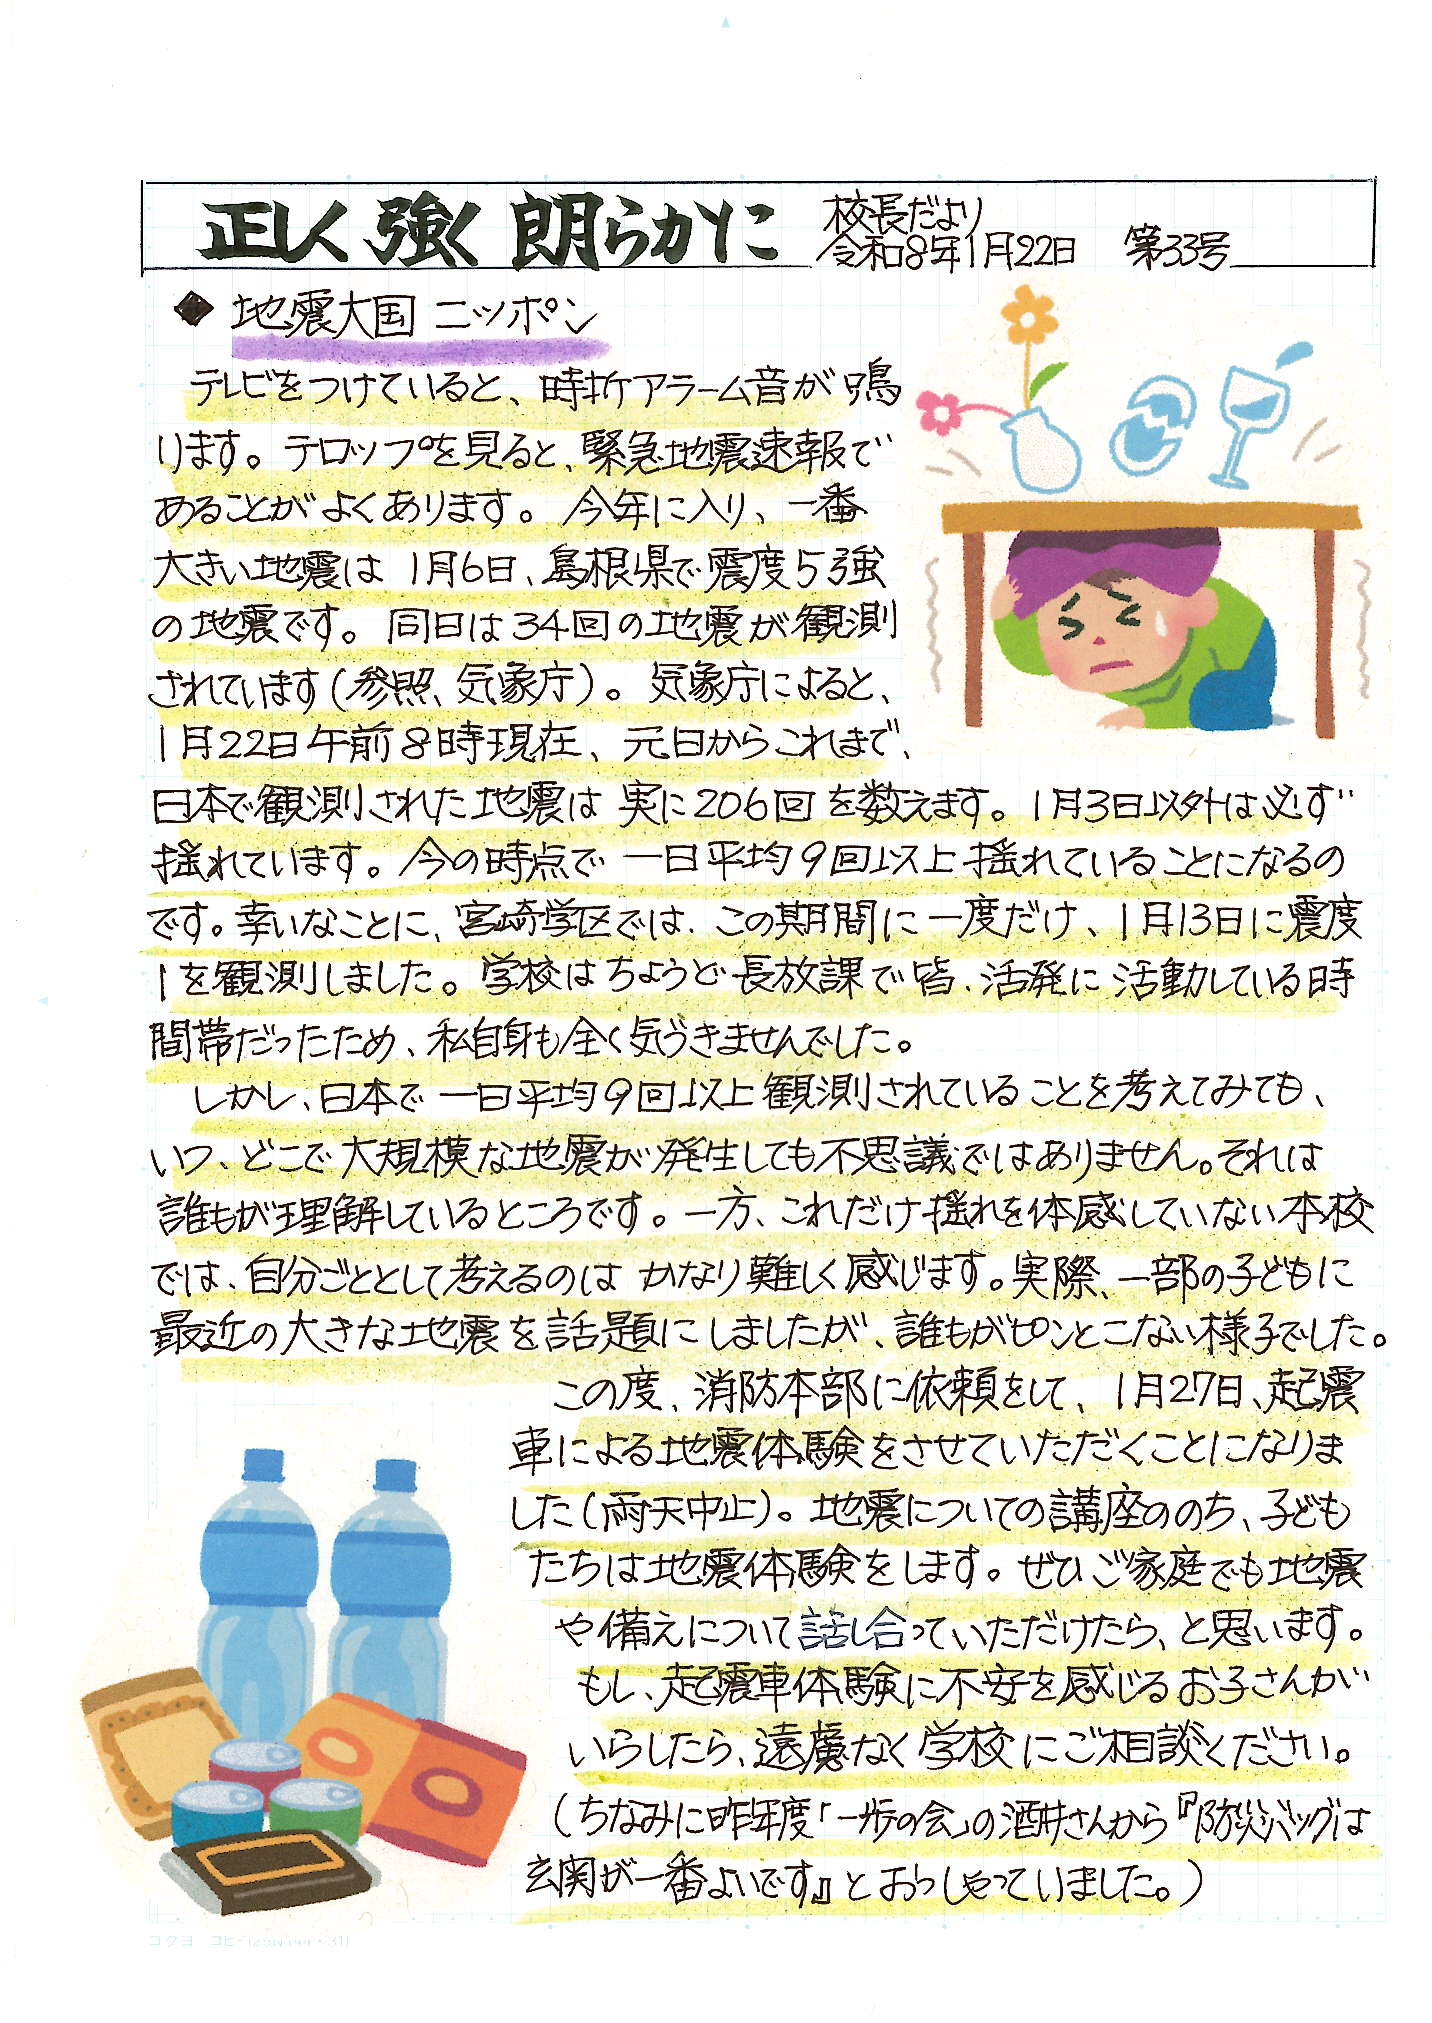 正しく 強く 朗らかに
校長だより
令和8年1月22日 第33号
◆ 地震大国 ニッポン
テレビをつけていると、時折アラーム音が鳴
ります。テロップを見ると、緊急地震速報で
あることがよくあります。今年に入り、一番
大きい地震は 1月6日、島根県で震度5強
の地震です。同日は34回の地震が観測
されています(参照、気象庁)。気象庁によると、
1月22日午前8時現在、元日からこれまで、
日本で観測された地震は 実に206回を数えます。1月3日以外は必ず
揺れています。今の時点で 一日平均9回以上揺れていることになるの
です。幸いなことに、宮崎学区では、この期間に一度だけ、1月13日に震度
1を観測しました。学校はちょうど長放課で皆、活発に活動している時
間帯だったため、私自身も全く気づきませんでした。
しかし、日本で一日平均9回以上観測されていることを考えてみても、
いつ、どこで大規模な地震が発生しても不思議ではありません。それは
誰もが理解しているところです。一方、これだけ揺れを体感していない本校
では、自分ごととして考えるのは かなり難しく感じます。実際、一部の子どもに
最近の大きな地震を話題にしましたが、誰もがピンとこない様子でした。
この度、消防本部に依頼をして、1月27日、起震
車による地震体験をさせていただくことになりま
した(雨天中止)。地震についての講座ののち、子ども
たちは地震体験をします。ぜひご家庭でも地震
や備えについて話し合っていただけたら、と思います。
もし、起震車体験に不安を感じるお子さんが
いらしたら、遠慮なく学校にご相談ください。
(ちなみに昨年度「一歩の会」の酒井さんから『防災バッグは
玄関が一番よいです』とおっしゃっていました。)